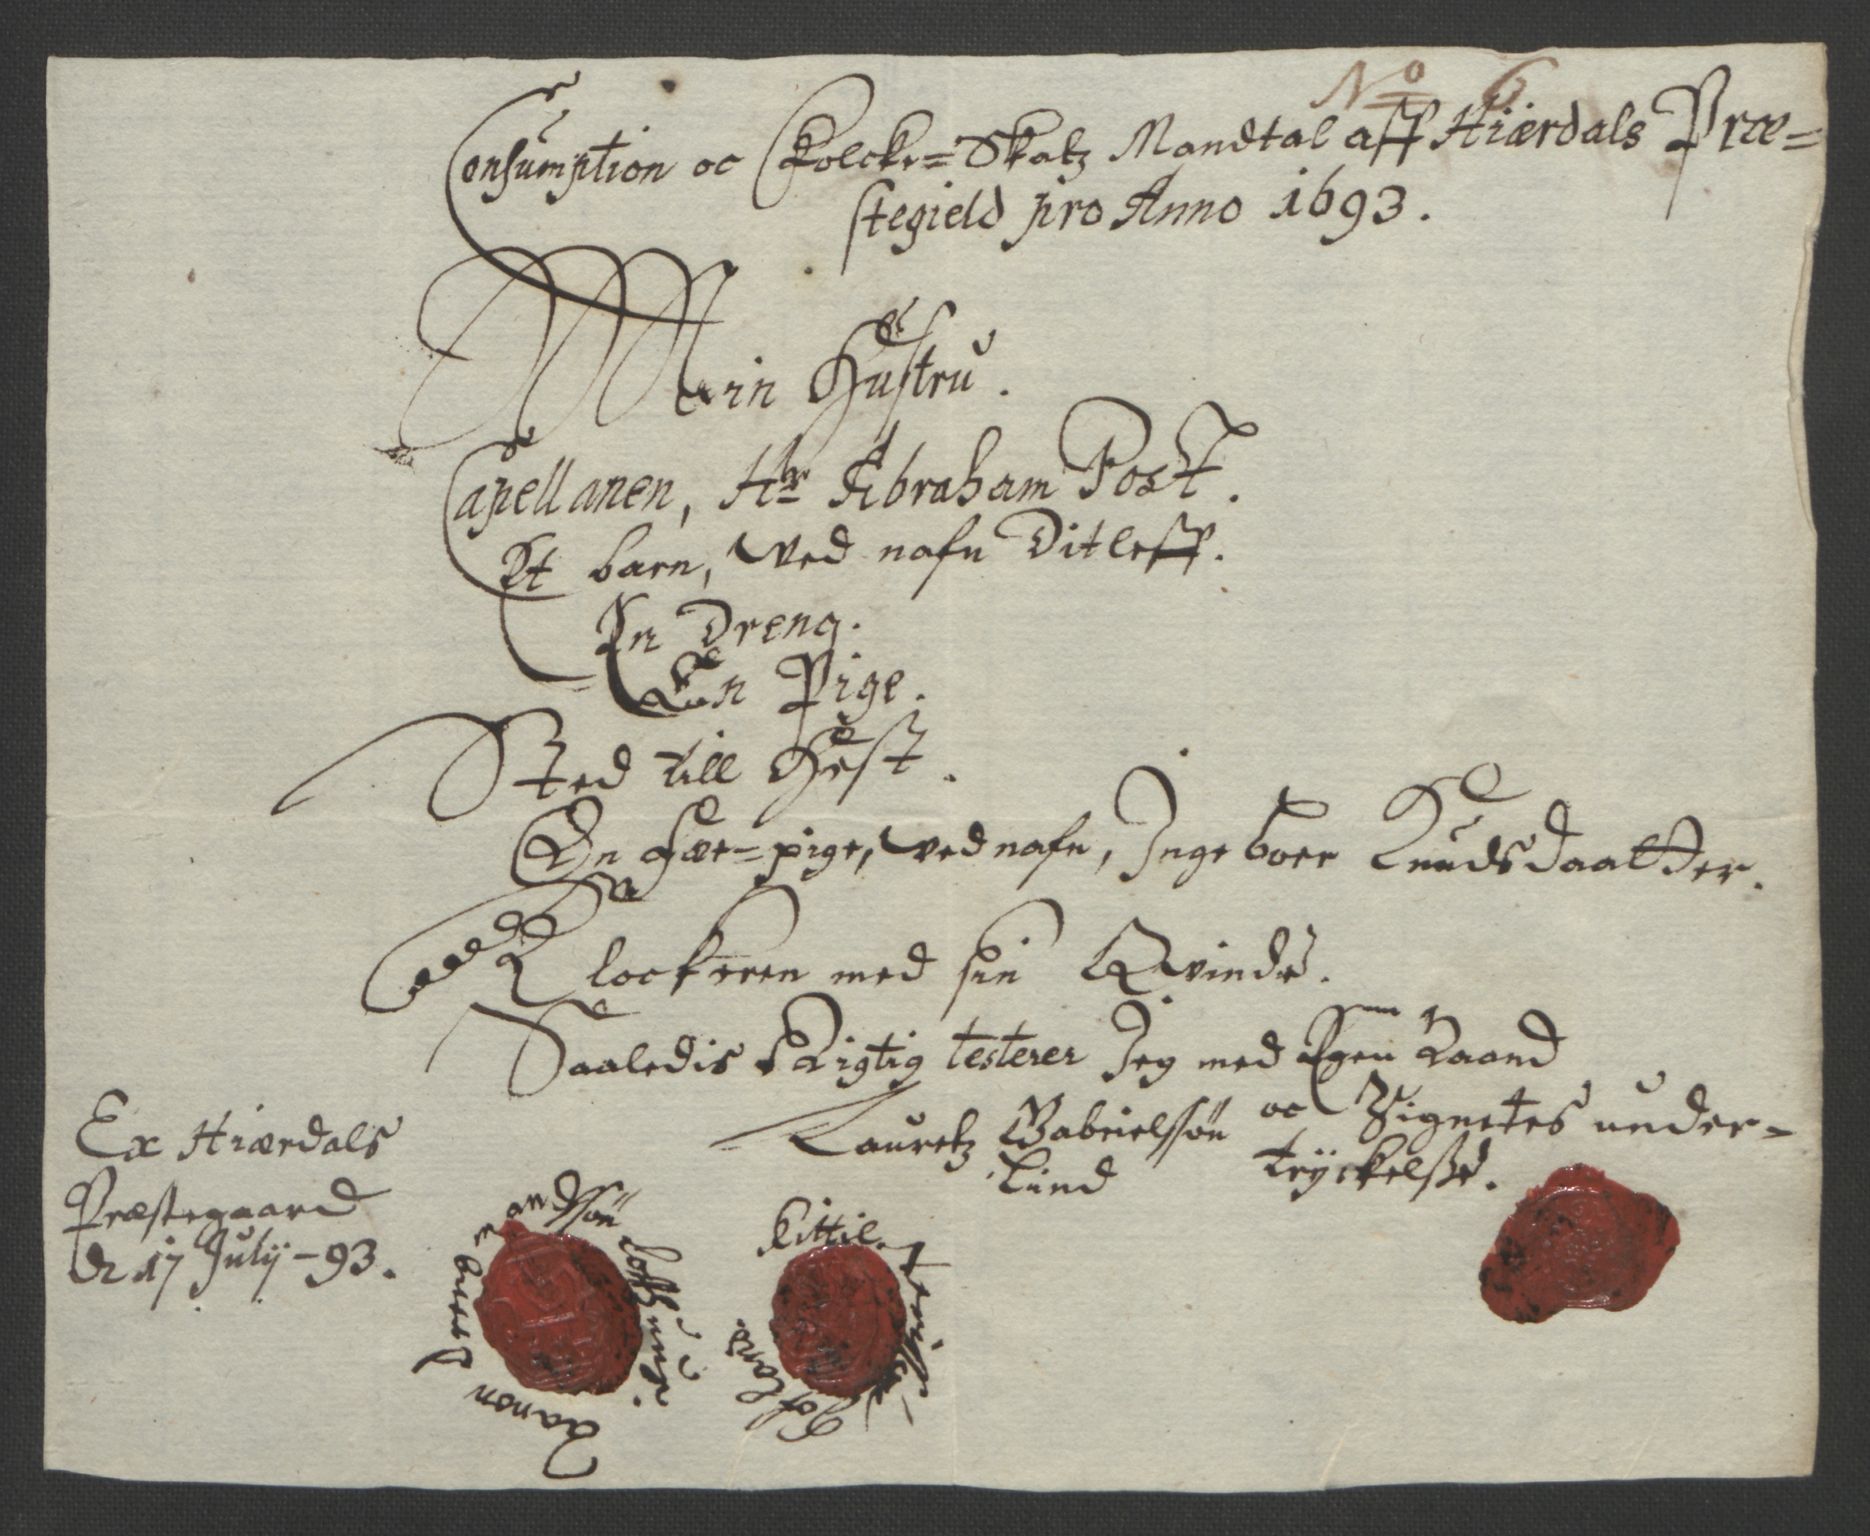 No 6
Consumption oc Folcke=Skatz Mandtal aff Hiærdals Præ=
stegield pro Anno 1693.
Min Hustru.
Capellanen, Hr Abraham Post.
Et barn, ved nafn Ditleff.
En Dreng.
Een Pige.
Sted till Hest.
En Fæe=pige, ved nafn, Ingeboer Knudsdaatter.
Klockeren med sin Qvinde.
Saaledis Rigtig testerer Jeg med Egen Haand
oc Zignetes under=
tryckelsse.
Lauretz Gabrielssøn
Lind
Ex Hiærdals
Præstegaard
d 17 Julij -93.
Kittil